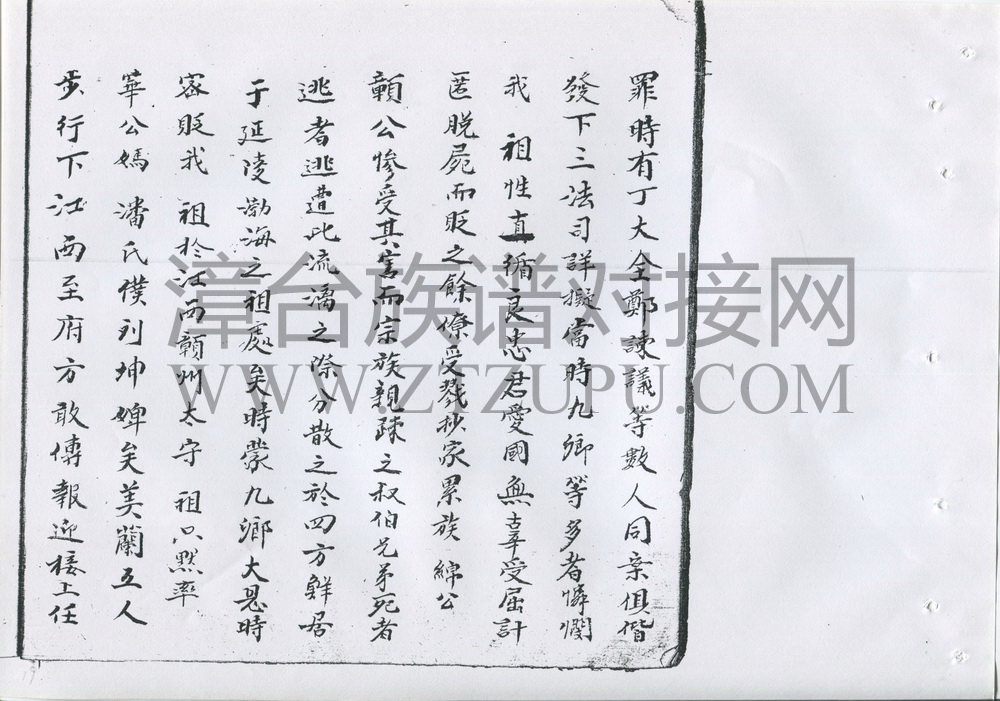 罪時有丁大全鄭諫議等數人同案俱偕
發下三法司詳擬當時九卿等多者憐憫
我 祖性直循良忠君愛國無辜受屈計
匿脫屍而貶之餘僚受戮抄家累族 綿公
顛公慘受其害而宗族親疎之叔伯兄弟死者
逃者逃遭此流漓之際分散之於四方鮮居
于延陵渤海之祖處矣時蒙九鄉大恩時
密貶我 祖於江西贑州太守 祖只默率
華公媽 潘氏僕刘坤婢矣美蘭五人
步行下江西至府方敢傳報迎接上任
漳台族谱对接网
WWW.ZTZUPU.COM